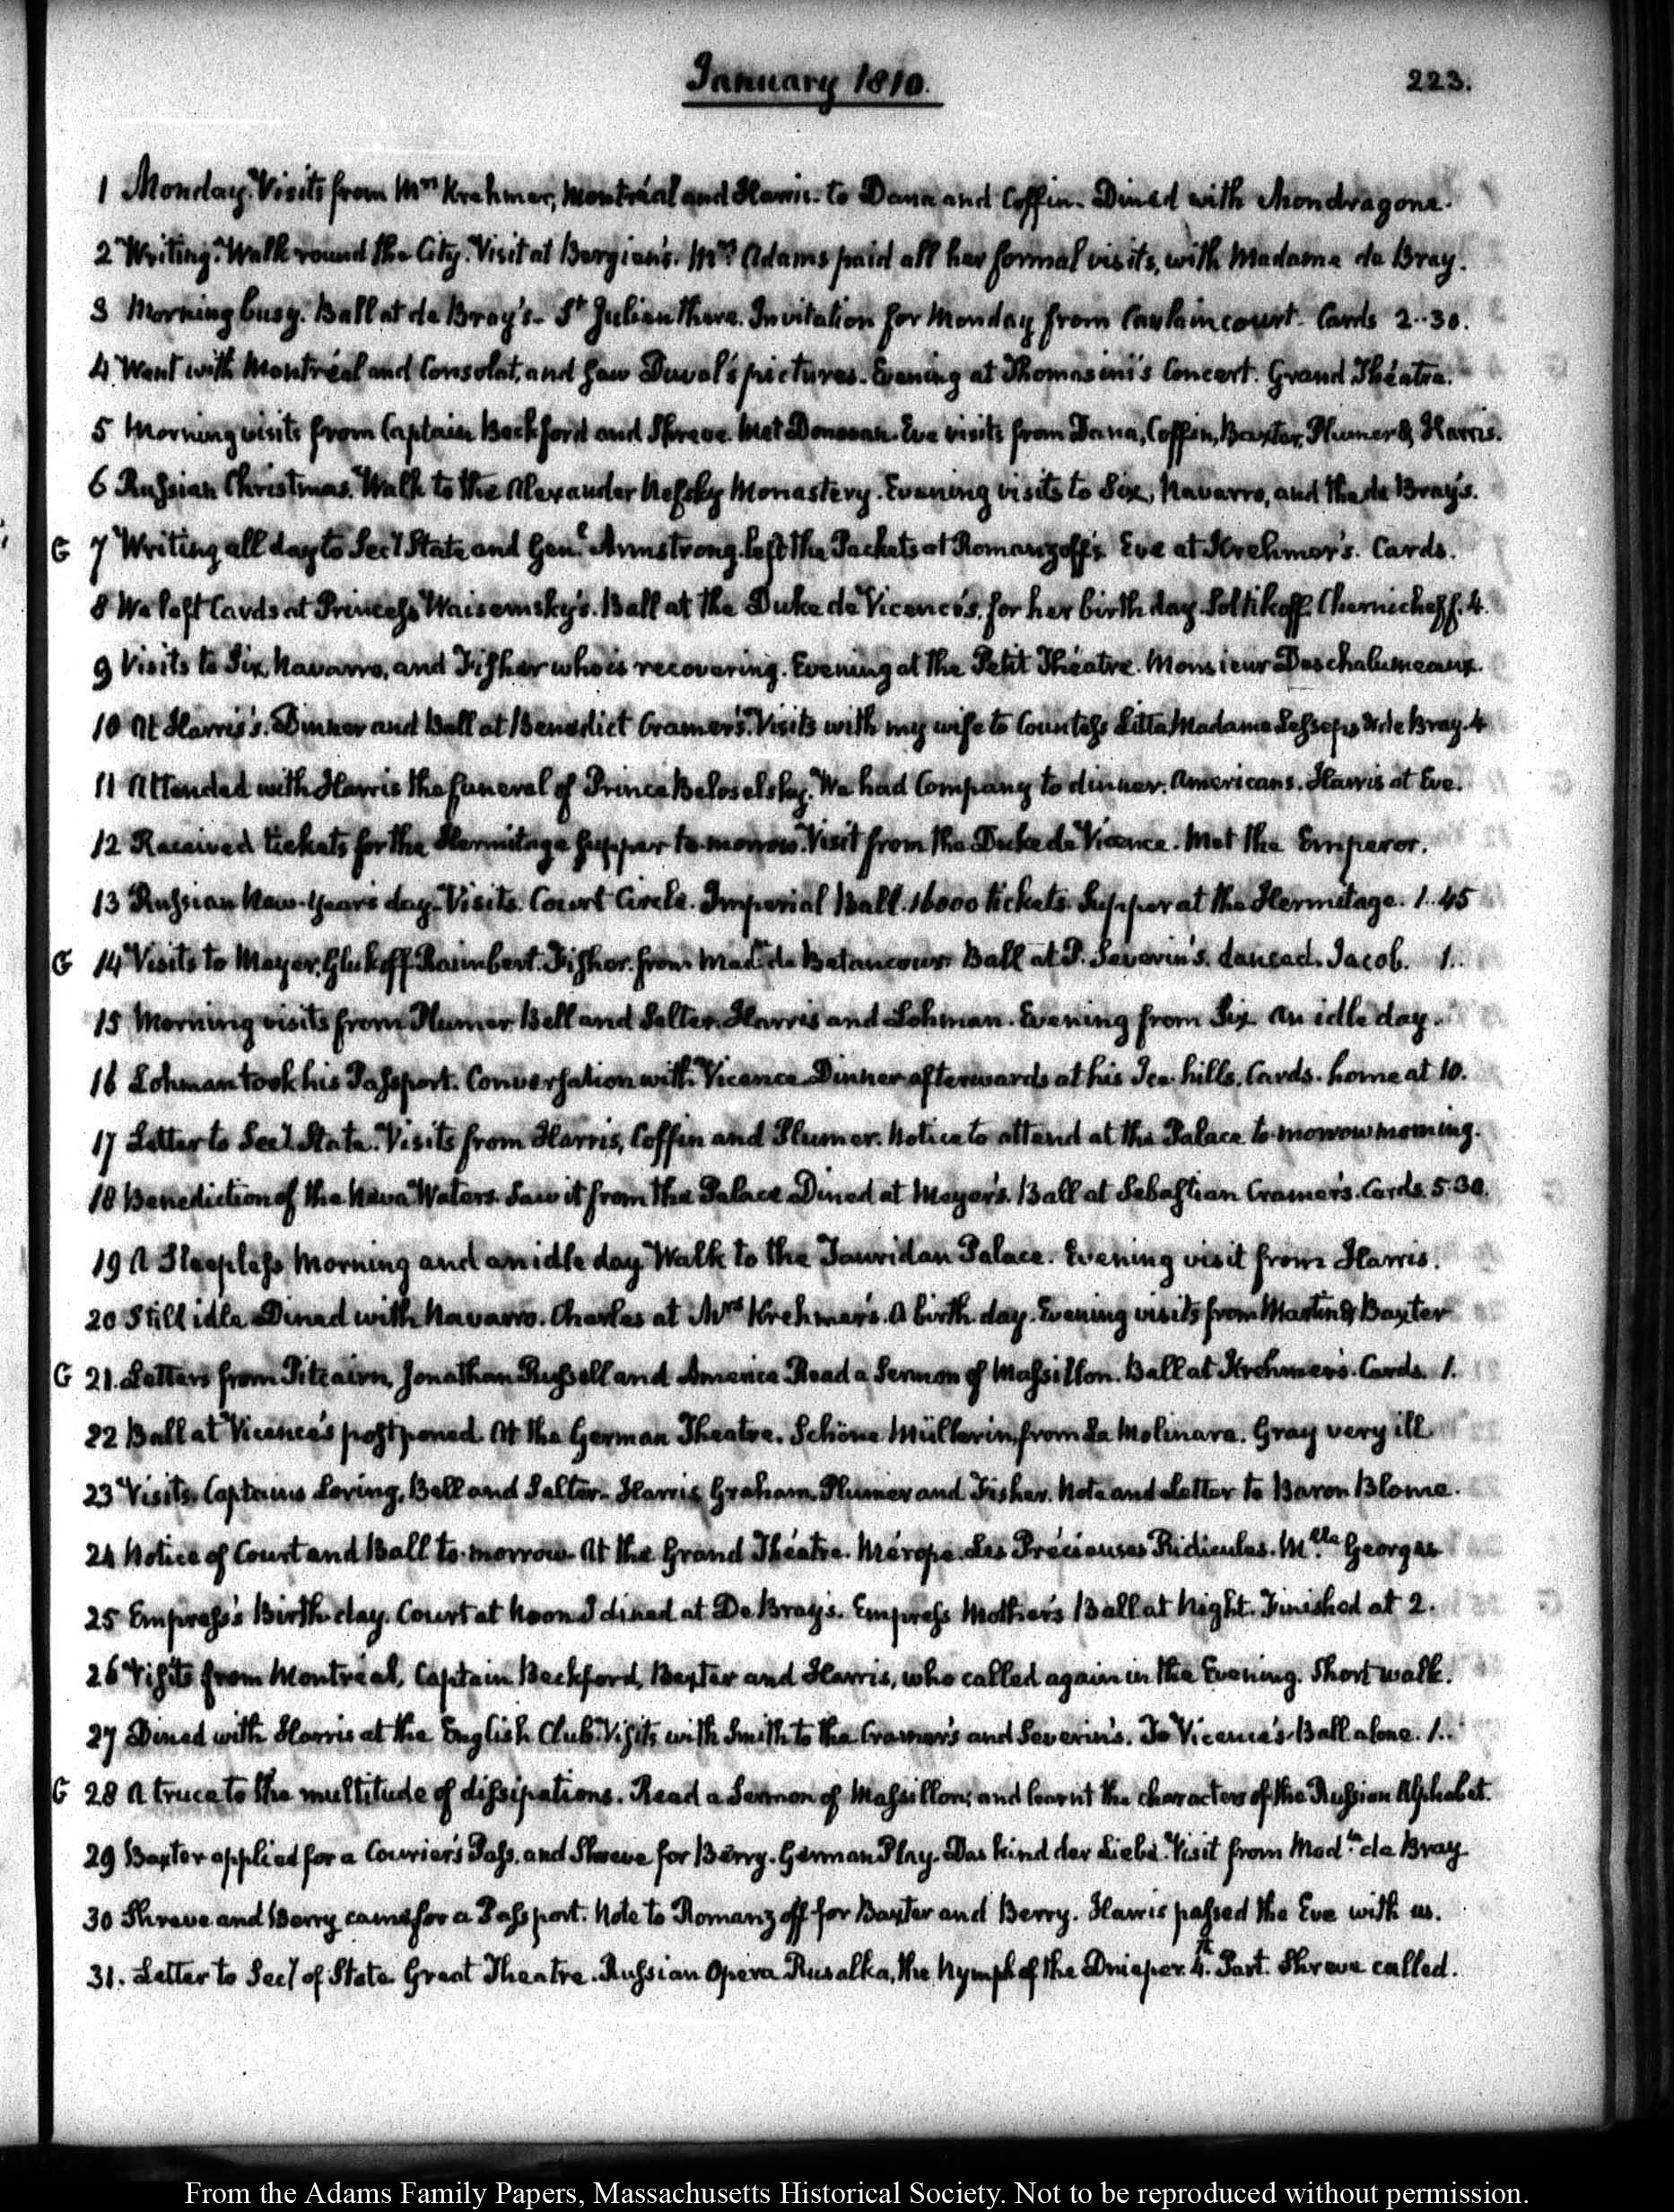 January 1810.
223.
1 Monday. Visits from Mrs Krehmer, Montréal and Harris. to Dana and Coffin. Dined with Mondragone.
2 Writing. Walk round the City. Visit at Bergien's. Mrs Adams paid all her formal visits, with Madame de Bray.
3 Morning busy. Ball at de Bray's. St Julian there. Invitation for Monday from Caulaincourt. Cards 2..30.
4. Went with Montréal and Consolat, and saw Duval's pictures. Evening at Thomasini's Concert. Grand Théatre.
5 Morning visits from Captain Beckford and Shreve. Met Donovan. Eve visits from Dana, Coffin, Baxter, Plumer & Harris.
6 Russian Christmas. Walk to the Alexander Nefsky Monastery. Evening visits to Six, Navarro, and the de Bray's.
G 7 Writing all day to Secy State and Genl Armstrong. left the Packets at Romanzoff's. Eve at Krehmer's. Cards.
8 We left Cards at Princess Waisemsky's. Ball at the Duke de Vicence's, for her birth day. Soltikoff. Chernicheff. 4.
9 Visits to Six, Navarro, and Fisher who is recovering. Evening at the Petit Théatre. Monsieur Deschalumeaux.
10 At Harris's. Dinner and Ball at Benedict Cramer's. Visits with my wife to Countess Litta Madame Lesseps & de Bray. 4
11 Attended with Harris the funeral of Prince Beloselsky. We had Company to dinner. Americans. Harris at Eve.
12 Received tickets for the Hermitage supper to-morrow. Visit from the Duke de Vicence. Met the Emperor.
13 Russian New-Year's day. Visits. Court Circle. Imperial Ball. 16000 tickets. Supper at the Hermitage. 1..45
G 14 Visits to Meyer, Glukoff. Raimbert. Fisher. from Made de Betancour. Ball at P. Severin's. danced. Jacob. 1..
15 Morning visits from Plumer. Bell and Salter. Harris and Lohman. Evening from Six. An idle day.
16 Lohman took his Passport. Conversation with Vicence. Dinner afterwards at his Ice-hills. Cards. home at 10.
17 Letter to Secy State. Visits from Harris, Coffin and Plumer. Notice to attend at the Palace to-morrow morning.
18 Benediction of the Neva Waters. Saw it from the Palace. Dined at Meyer's. Ball at Sebastian Cramer's. Cards. 5.30.
19 A Sleepless Morning and an idle day. Walk to the Tauridan Palace. Evening visit from Harris.
20 Still idle. Dined with Navarro. Charles at Mrs Krehmer's. A birth day. Evening visits from Martin & Baxter
G 21. Letters from Pitcairn, Jonathan Russell and America. Read a Sermon of Massillon. Ball at Krehmer's. Cards. 1.
22 Ball at Vicence's postponed. At the German Theatre. Schöne Müllerin, from La Molinara. Gray very ill.
23 Visits. Captains Loring, Bell and Salter. Harris, Graham, Plumer and Fisher. Note and Letter to Baron Blome.
24 Notice of Court and Ball to-morrow. At the Grand Théatre. Mérope. Les Précieuses Ridicules. Mlle Georges
25 Empress's Birth-day. Court at Noon. I dined at De Bray's. Empress Mother's Ball at Night. Finished at 2.
26 Visits from Montréal, Captain Beckford, Baxter and Harris, who called again in the Evening. Short walk.
27 Dined with Harris at the English Club. Visits with Smith to the Cramer's and Severin's. To Vicence's Ball alone. 1..
G 28 A truce to the multitude of dissipations. Read a Sermon of Massillon; and learnt the characters of the Russian Alphabet.
29 Baxter applied for a Courier's Pass, and Shreve for Berry. German Play. Das kind der Liebe. Visit from Made de Bray.
30 Shreve and Berry came for a Passport. Note to Romanzoff for Baxter and Berry. Harris passed the Eve with us.
31. Letter to Secy of State. Great Theatre. Russian Opera Rusalka, the Nymph of the Dnieper. 4th Part. Shreve called.
From the Adams Family Papers, Massachusetts Historical Society. Not to be reproduced without permission.